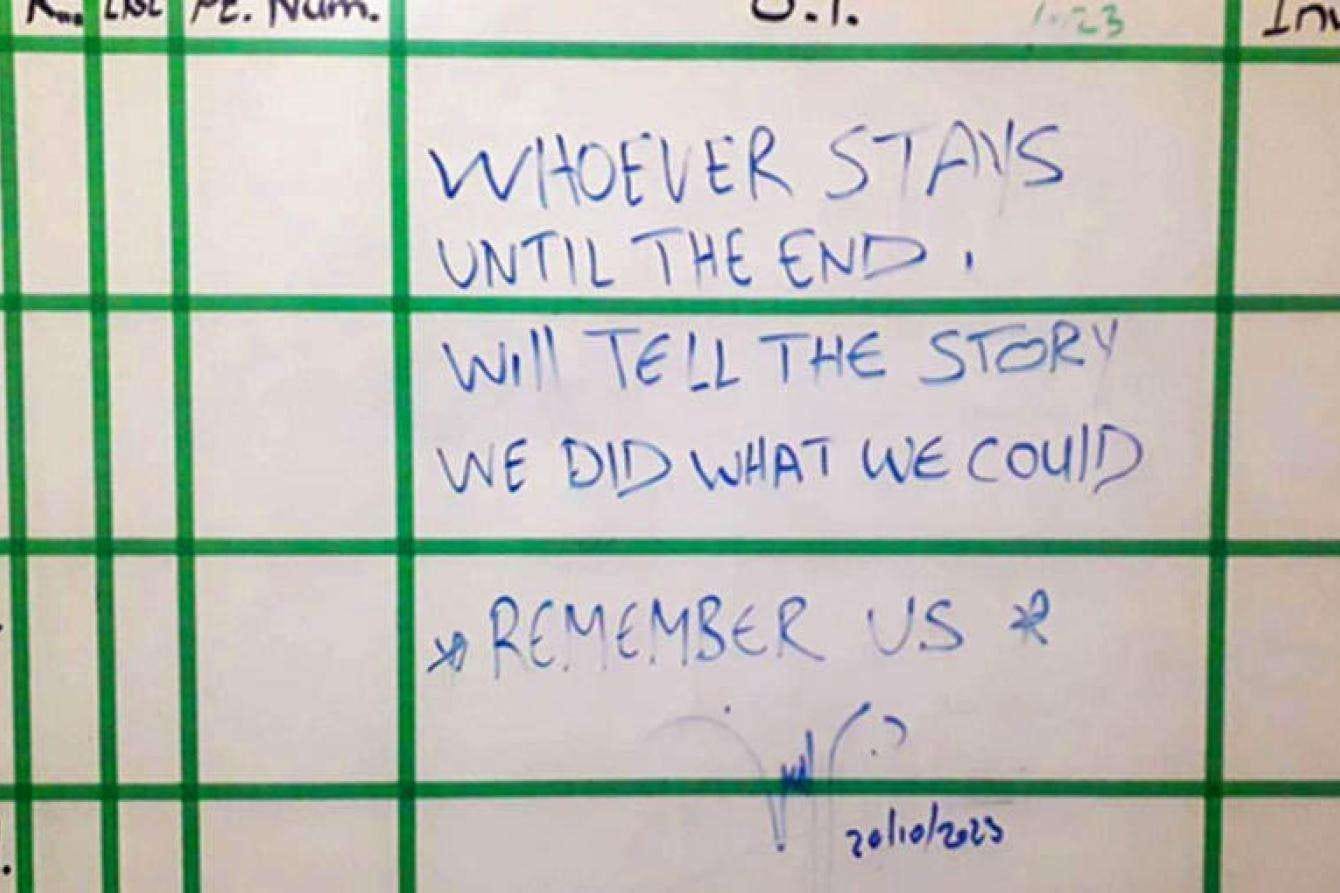 List Pt. Num.
WHOEVER STAYS
UNTIL THE END.
Will TELL THE STORY
WE DID WHAT WE COUlD
*REMEMBER US *
20/10/2023